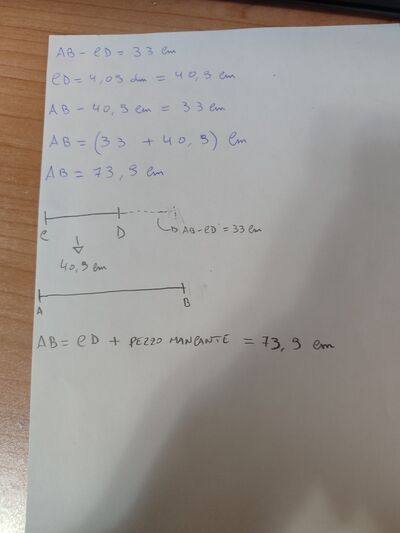 AB - CD = 33 cm
CD = 4,09 dm = 40,9 cm
AB - 40,9 cm = 33 cm
AB = (33 + 40,9) cm
AB = 73,9 cm
C D AB-CD = 33 cm
40,9 cm
A B
AB = CD + PEZZO MANCANTE = 73,9 cm